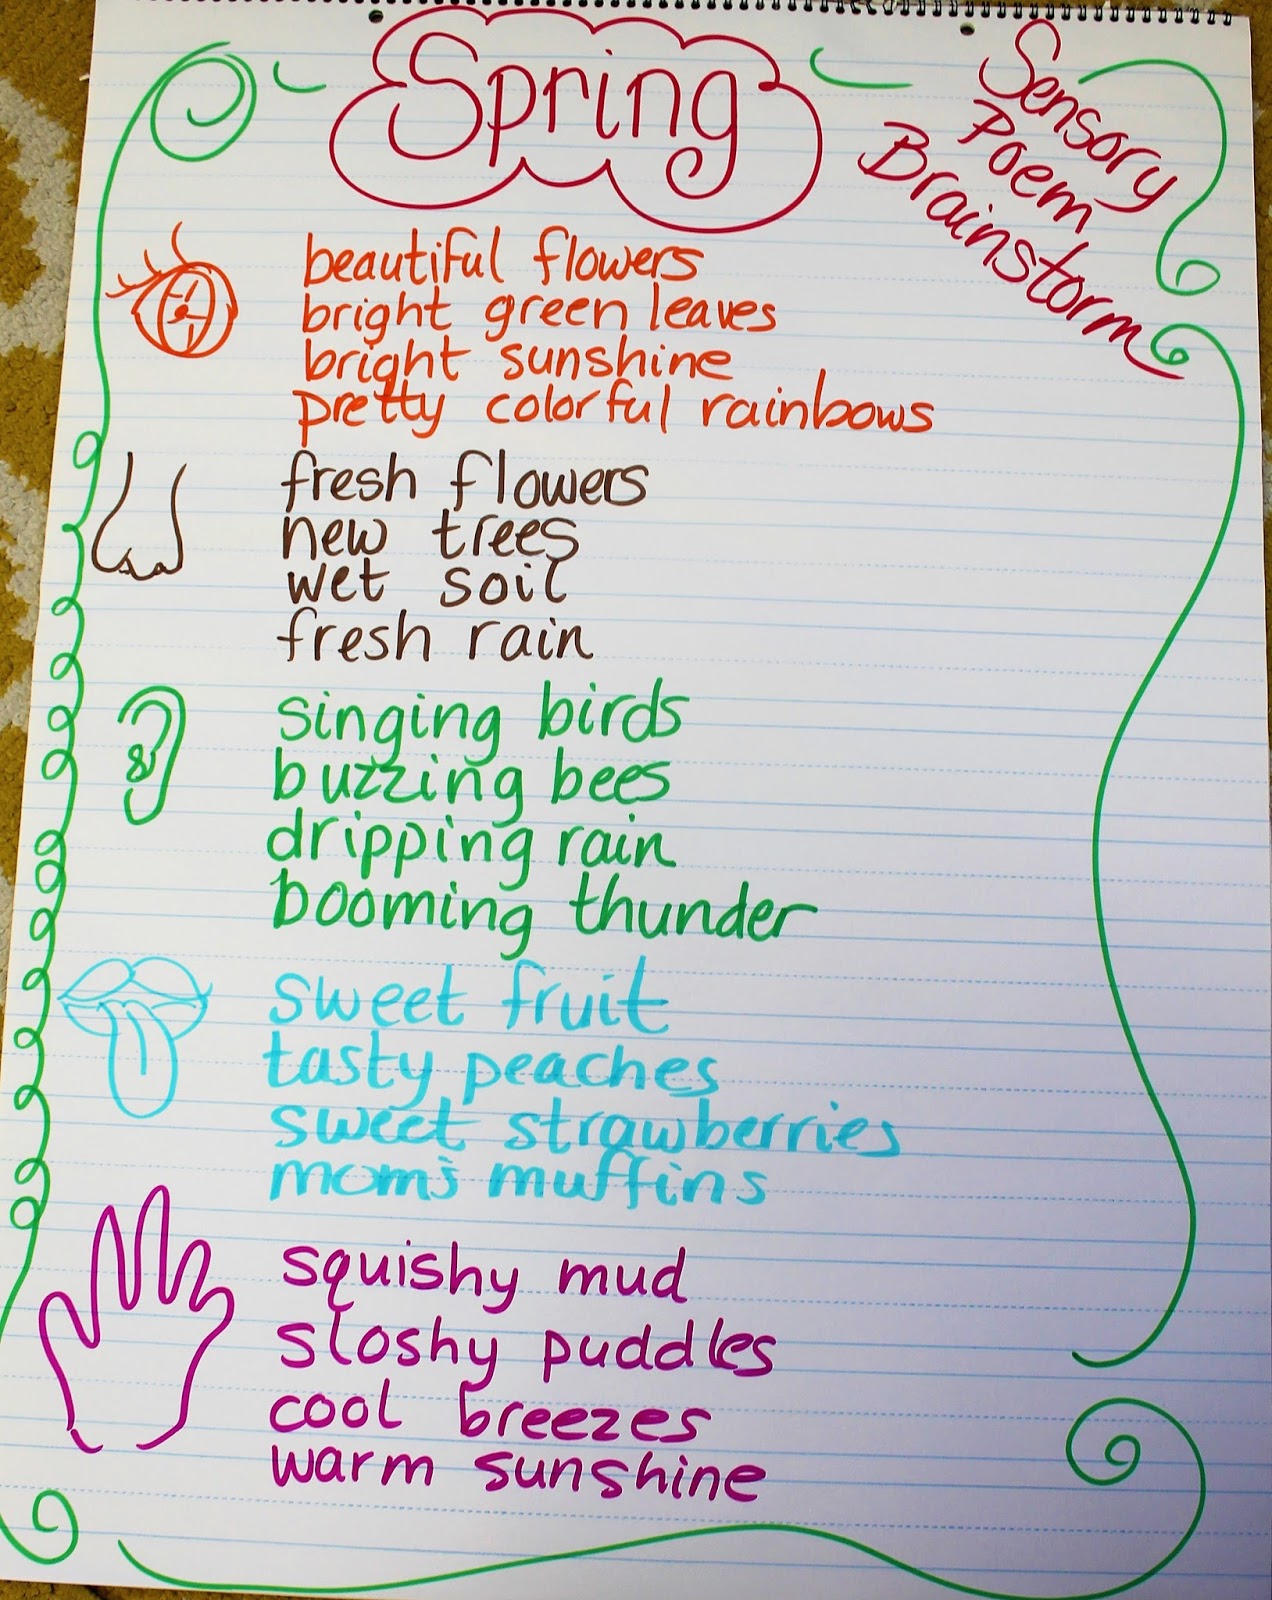 Spring
Sensory
Poem
Brainstorm
beautiful flowers
bright green leaves
bright sunshine
pretty colorful rainbows
fresh flowers
new trees
wet soil
fresh rain
singing birds
buzzing bees
dripping rain
booming thunder
sweet fruit
tasty peaches
sweet strawberries
mom's muffins
squishy mud
sloshy puddles
cool breezes
warm sunshine